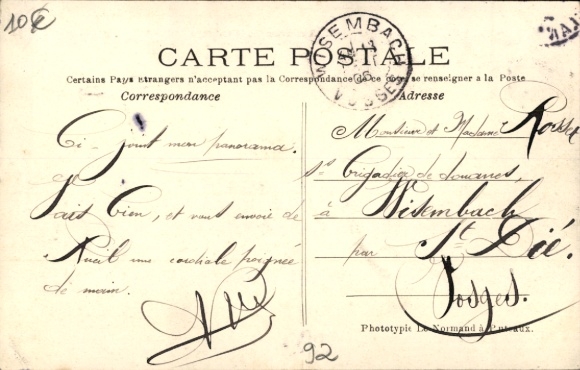 10€
WISEMBACH
VOSGES
CARTE POSTALE
Certains Pays étrangers n'acceptant pas la Correspondance de ce côté, se renseigner à la Poste
Correspondance
Adresse
Ci-joint mon panorama.
Je
vais bien, et vous envoie de
Rueil une cordiale poignée
de main.
Monsieur et Madame Rosset
s/s brigadier de douanes,
à Wisembach
par St Dié.
Vosges.
Phototypie Le Normand à Puteaux.
92